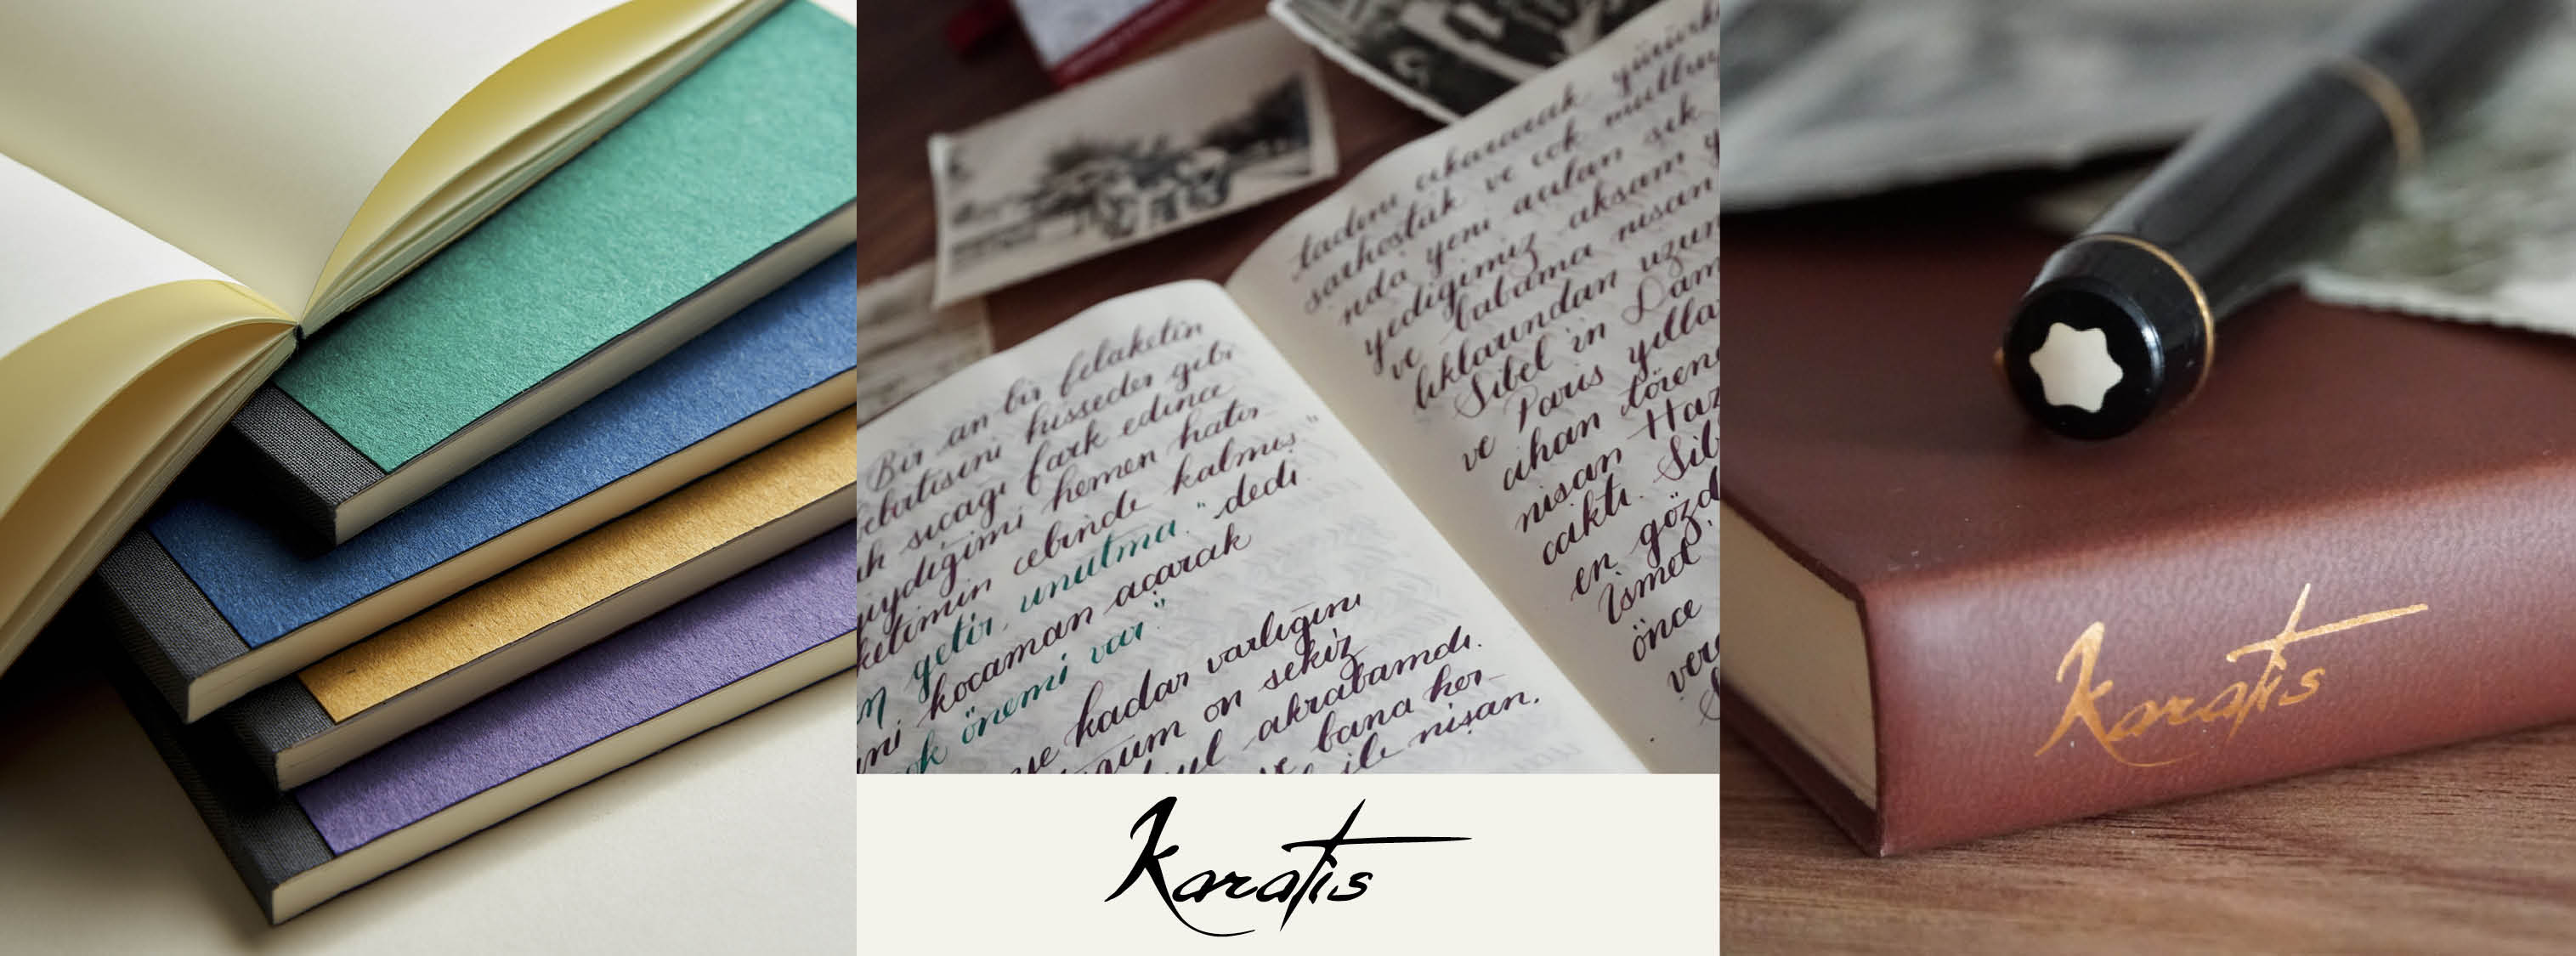 Bir an bir felaketin
hisseder gibi
k sıcağı fark edince
ydiğimi hemen hatır
ketimin cebinde kalmış."
getir, unutma." dedi
kocaman açarak
ok önemi var."
ye kadar varlığını
on sekiz
akrabamdı.
ve bana her-
ile nişan.
tadını çıkararak yürürk
sarhoştuk ve çok mutluy
nda yeni açılan şık
yediğimiz akşam y
ve babama nişan
lıklarından uzun
Sibel'in Dam
ve Paris yılla
cihan tören
nişan Haz
cıktı. Sib
en gözd
İsmet
önce
vere
Karatis
Karatis